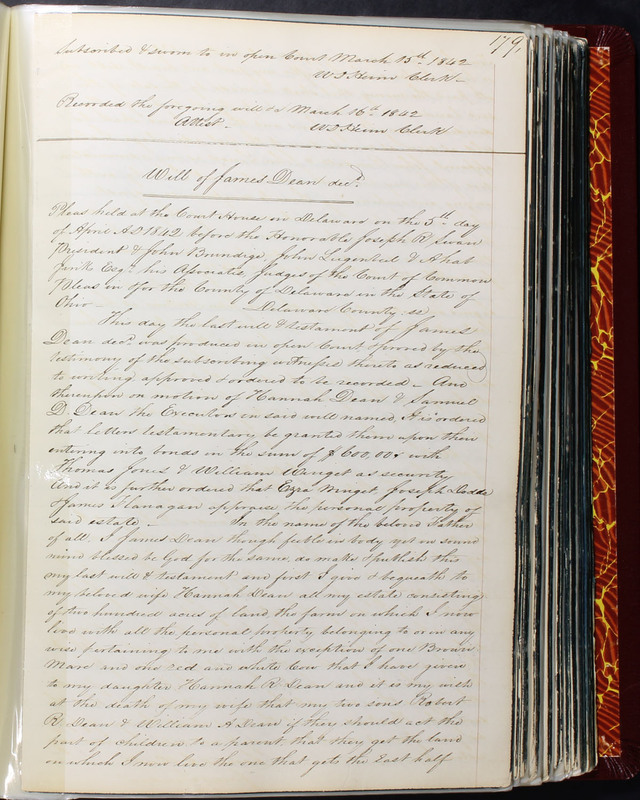 179
Subscribed & sworn to in open Court March 15th 1842
Clerk
Recorded the foregoing will &c March 16th 1842
Attest Clerk
Will of James Dean decd.
Pleas held at the Court House in Delaware on the 5th day
of April AD 1842 before the Honorable Joseph R. Swan
President & John Brundige, John &
Esqrs his Associate Judges of the Court of Common
Pleas in & for the County of Delaware in the State of
Ohio Delaware County ss
This day the last will & testament of James
Dean decd was produced in open Court, proved by the
testimony of the subscribing witnesses thereto as reduced
to writing approved & ordered to be recorded And
thereupon on motion of Hannah Dean & Samuel
D. Dean the Executors in said will named, it is ordered
that letters testamentary be granted them upon their
entering into bonds in the sum of $600,00 with
Thomas Jones & William as security
And it is further ordered that Ezra Joseph
& James Flanagan appraise the personal property of
said estate In the name of the beloved Father
of all. I James Dean though feeble in body yet in sound
mind blessed be God for the same, do make & publish this
my last will & testament and first I give & bequeath to
my beloved wife Hannah Dean all my estate consisting
of two hundred acres of land the farm on which I now
live with all the personal property belonging to or in any
wise pertaining to me with the exception of one Brown
Mare and one red and white Cow that I have given
to my daughter Hannah R Dean and it is my wish
at the death of my wife that my two sons Robert
R Dean & William A Dean if they should act the
part of children to a parent, that they get the land
on which I now live the one that gets the East half